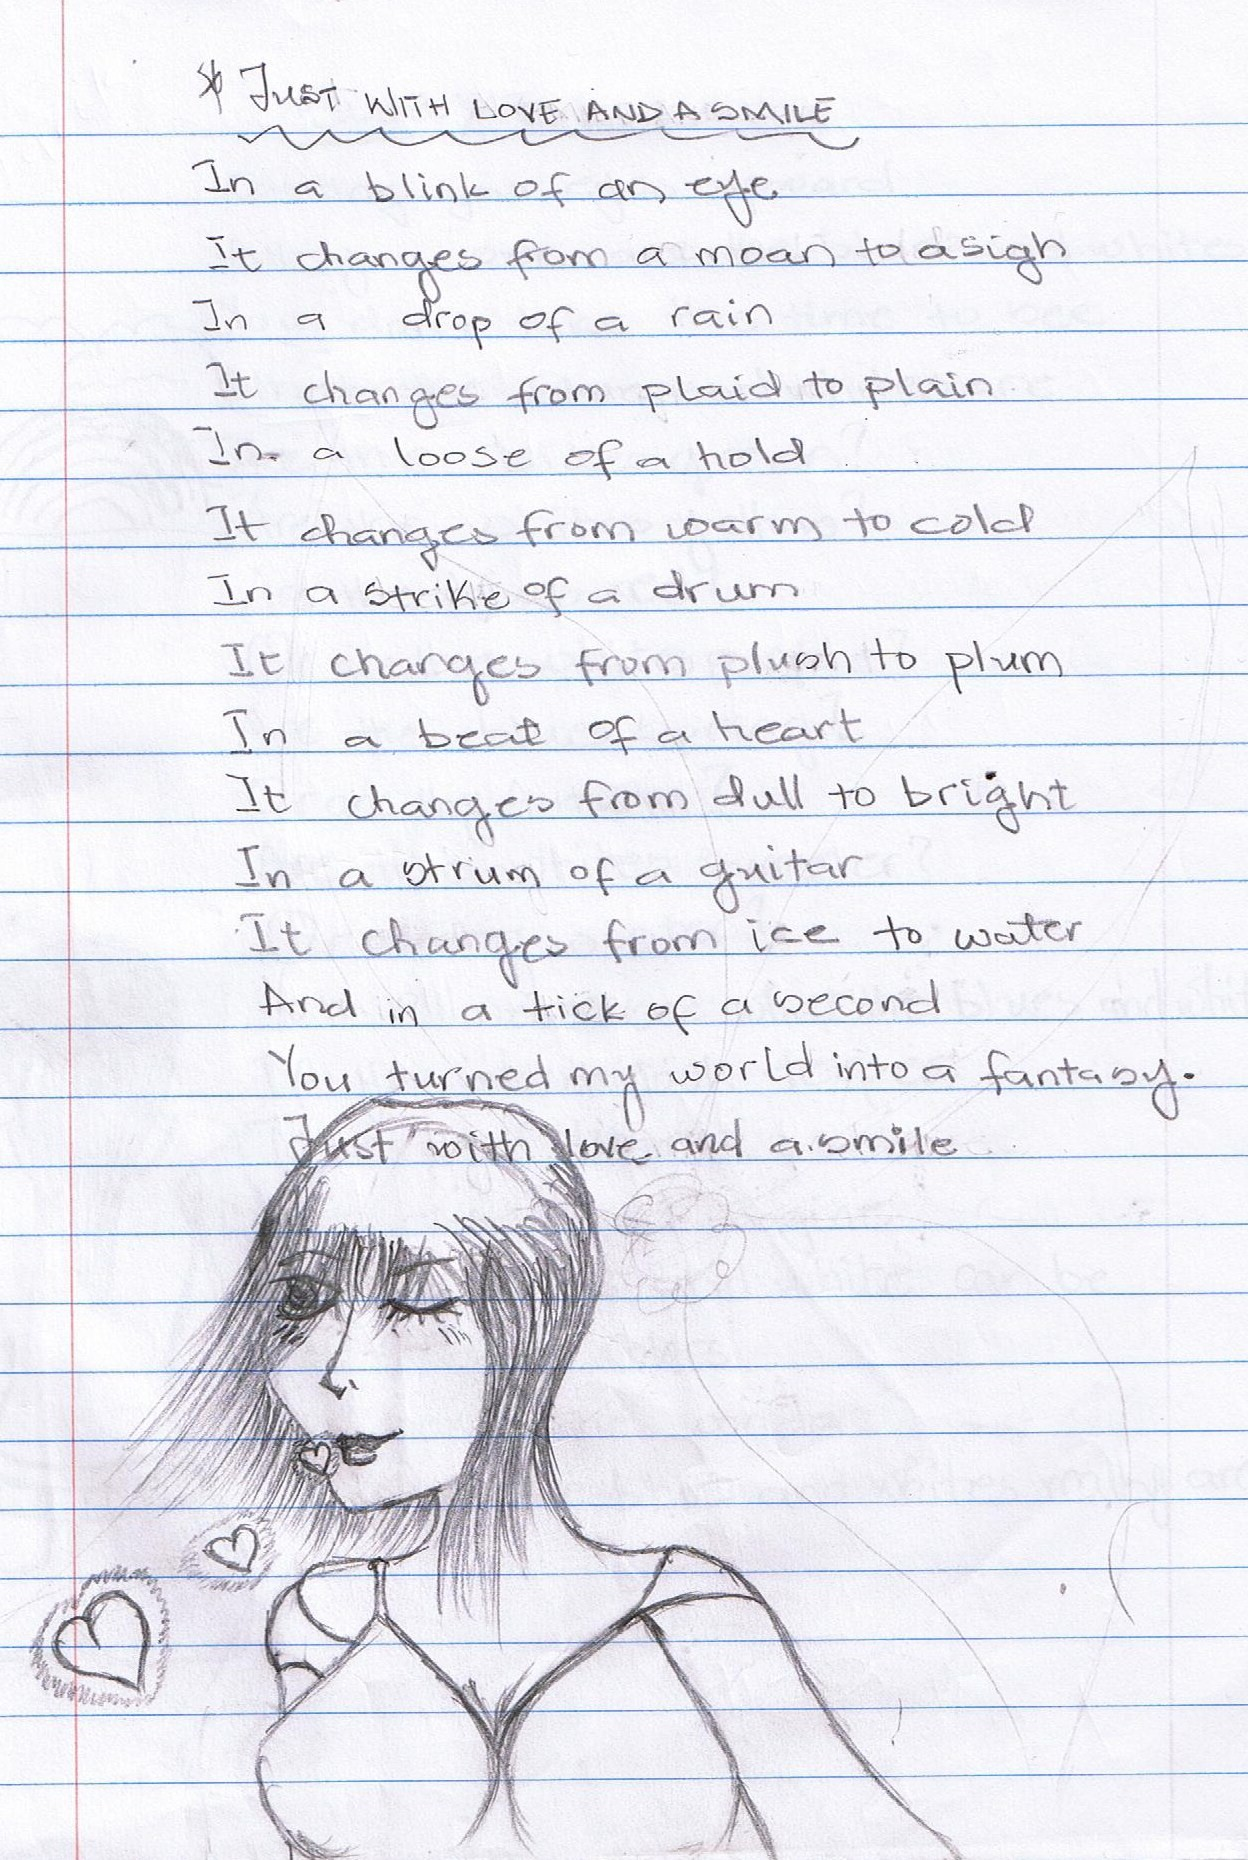 * JUST WITH LOVE AND A SMILE
In a blink of an eye
It changes from a moan to a sigh
In a drop of a rain
It changes from plaid to plain
In a loose of a hold
It changes from warm to cold
In a strike of a drum
It changes from plush to plum
In a beat of a heart
It changes from dull to bright
In a strum of a guitar
It changes from ice to water
And in a tick of a second
You turned my world into a fantasy.
Just with love and a smile